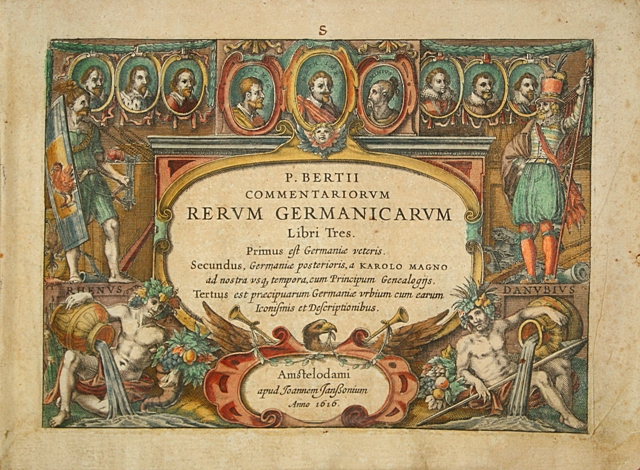 S
P. BERTII
COMMENTARIORVM
RERVM GERMANICARVM
Libri Tres.
Primus est Germaniæ veteris.
Secundus, Germaniæ posterioris, a KAROLO MAGNO
ad nostra vsq, tempora, cum Principum Genealogijs.
Tertius est præcipuarum Germaniæ vrbium cum earum
Iconismis et Descriptionibus.
RHENVS
DANVBIVS
Amstelodami
apud Joannem Janssonium
Anno 1616.